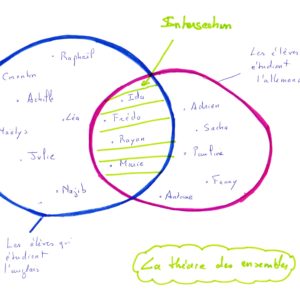 Intersection
Raphaël
Corentin
Achille
Léa
Maëlys
Julie
Najib
Ida
Rayan
Marie
Adrien
Sacha
Pauline
Fanny
Antoine
Les élèves
étudient
l'allemand
Les élèves qui
étudient
l'anglais
La théorie des ensembles